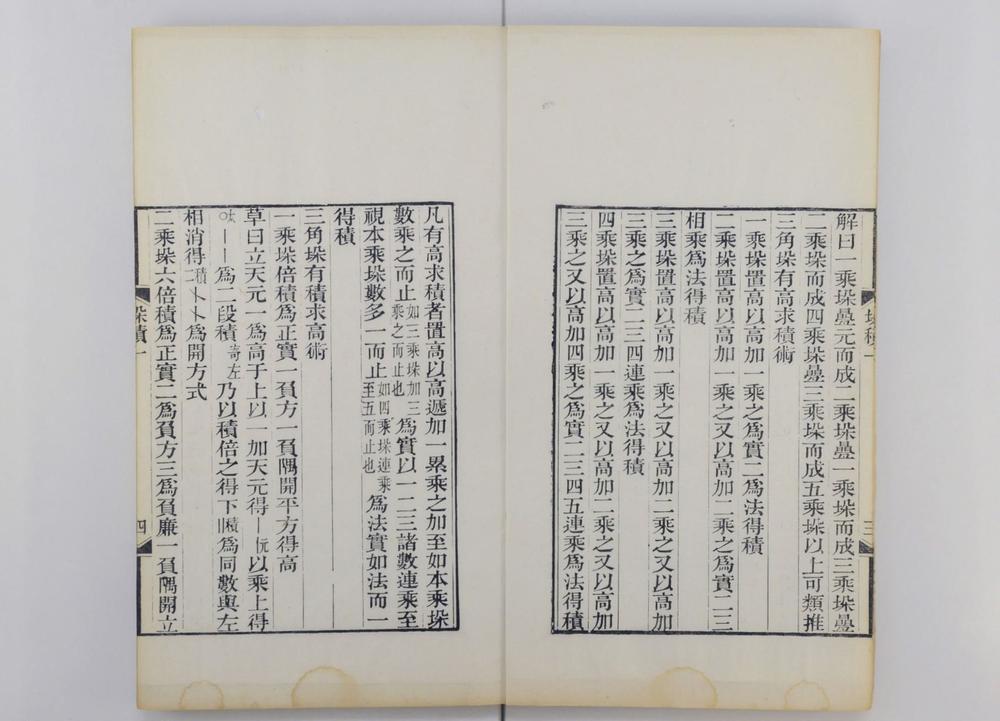 解曰一乘垛疊元而成二乘垛疊一乘垛而成三乘垛疊
二乘垛而成四乘垛疊三乘垛而成五乘垛以上可類推
三角垛有高求積術
一乘垛置高以高加一乘之爲實二爲法得積
二乘垛置高以高加一乘之又以高加二乘之爲實二三
相乘爲法得積
三乘垛置高以高加一乘之又以高加二乘之又以高加
三乘之爲實二三四連乘爲法得積
四乘垛置高以高加一乘之又以高加二乘之又以高加
三乘之又以高加四乘之爲實二三四五連乘爲法得積
垛積一
三
凡有高求積者置高以高遞加一累乘之加至如本乘垛
數乘之而止如三乘垛加三乘之而止也爲實以一二三諸數連乘至
視本乘垛數多一而止如四乘垛連乘至五而止也爲法實如法而一
得積
三角垛有積求高術
一乘垛倍積爲正實一負方一負隅開平方得高
草曰立天元一爲高于上以一加天元得以乘上得
爲二段積寄左乃以積倍之得下積爲同數與左
相消得爲開方式
二乘垛六倍積爲正實二爲負方三爲負廉一負隅開立
垛積一
四